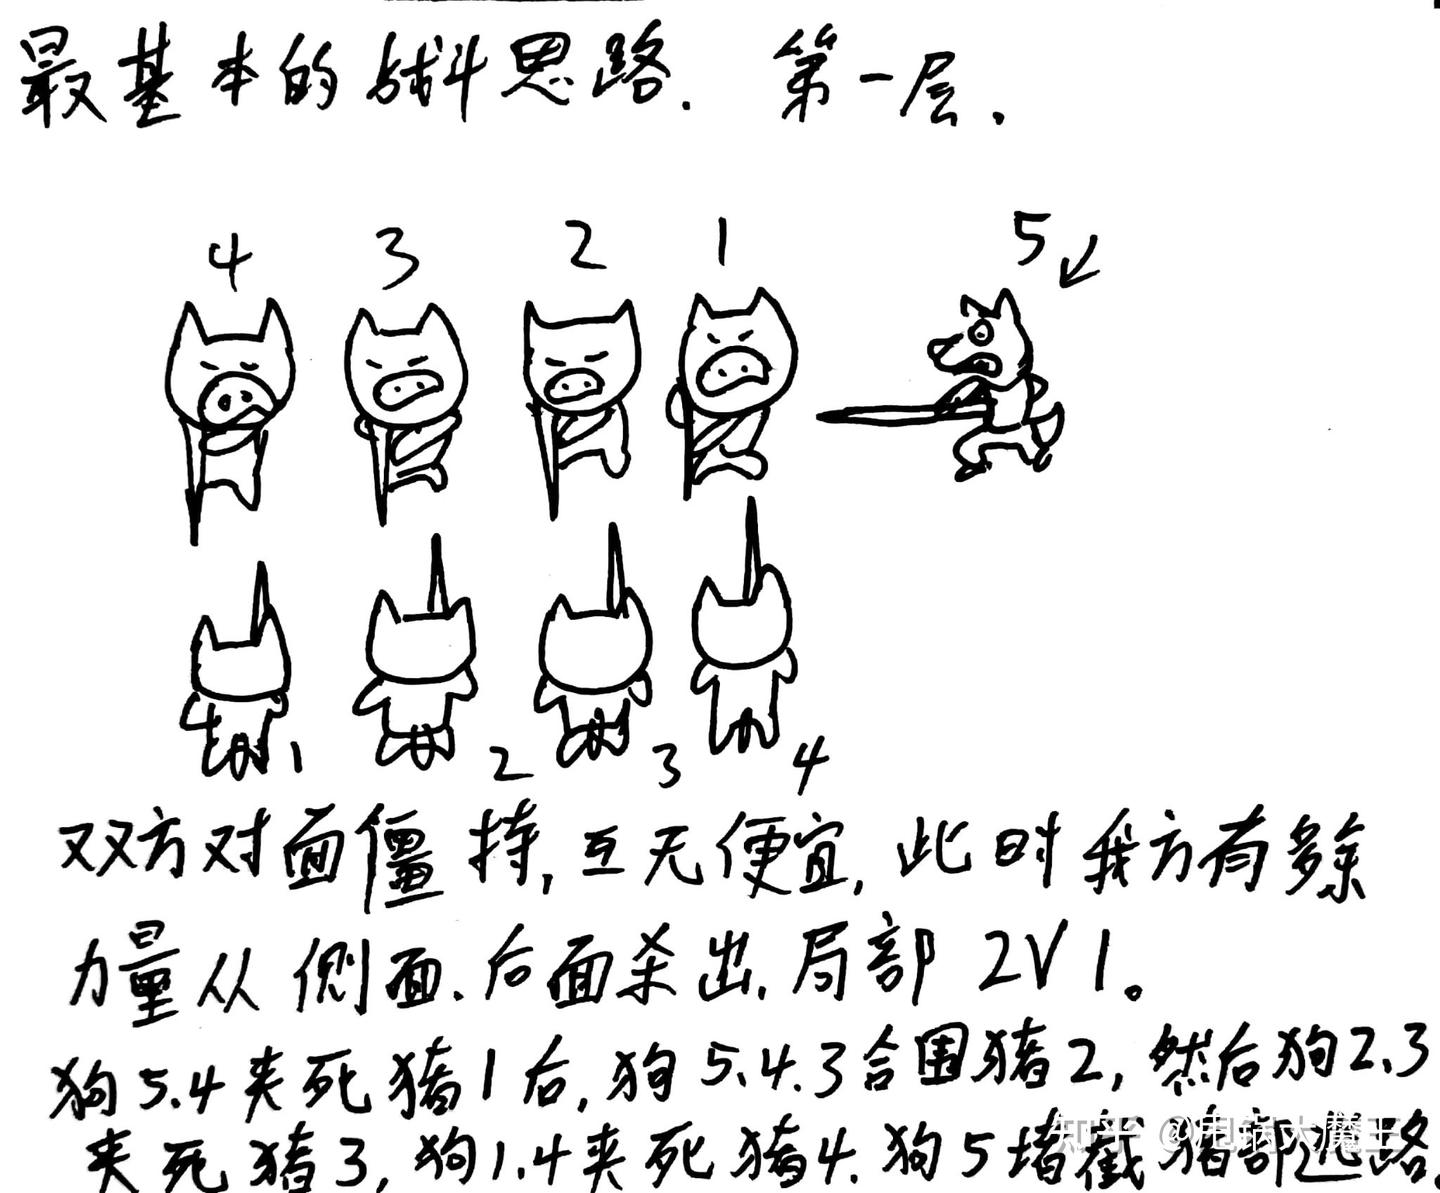 最基本的战斗思路. 第一层.
4 3 2 1 5
1 2 3 4
双方对面僵持,互无便宜,此时我方有多余
力量从侧面.后面杀出.局部 2V1。
狗5.4夹死猪1后,狗5.4.3合围猪2,然后狗2.3
夹死猪3,狗1.4夹死猪4.狗5堵截猪部退路.
知乎 @甩锅大魔王